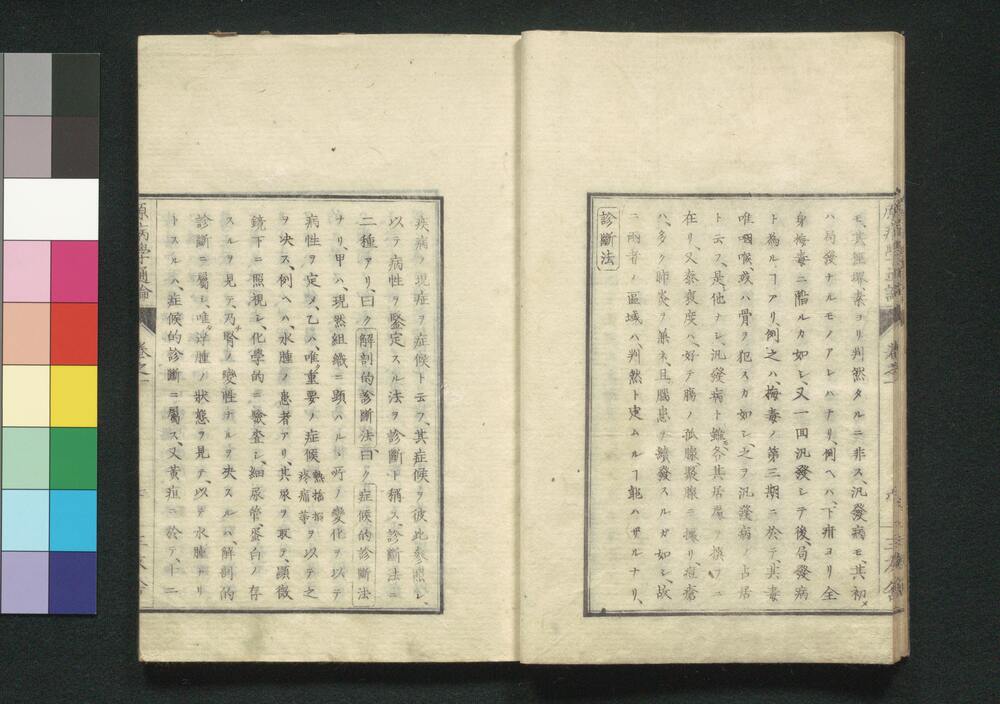 モ、其經界素ヨリ判然タルニ非ス、汎發病モ、其初
ハ局發ナルモノアレハナリ、例ヘハ、下疳ヨリ全
身梅毒ニ陷ルカ如シ、又一回汎發シテ後、局發病
ト為ルヿアリ、例之ハ、梅毒ノ第三期ニ於テ、其毒
唯咽喉、或ハ骨ヲ犯スカ如シ、之ヲ汎發病ノ占居
ト云フ、是他ナシ、汎發病ト雖、各其居處ヲ撰フニ
在リ、又泰衰度ハ、好テ腸ノ孤腺聚腺ニ據リ、痘瘡
ハ、多ク肺炎ヲ兼ネ、且腦患ヲ續發スルガ如シ、故
ニ兩者ノ區域ハ、判然ト定ムルヿ能ハザルナリ、
診斷法
疾病ノ現症ヲ症候ト云フ、其症候ヲ彼此參照シ、
以テ病性ヲ鑒定スル法ヲ診斷ト稱ス、診斷法ニ
二種アリ、曰ク解剖的診斷法、曰ク症候的診斷法
ナリ、甲ハ、現然組織ニ顕ハルヽ所ノ變化ヲ以テ
病性ヲ定メ、乙ハ、唯重要ノ症候熱搐搦疼痛等ヲ以テ之
ヲ决ス、例ヘハ、水腫ノ患者アリ、其尿ヲ取テ、顯微
鏡下ニ照視シ、化學的ニ驗查シ、細尿管蛋白ノ存
スルヲ見テ、乃腎ノ變性ナルヲ决スルハ、解剖的
診斷ニ屬シ、唯浮腫ノ狀態ヲ見テ、以テ水腫ナリ
トスルハ、症候的診斷ニ屬ス、又黃疸ニ於テ、十二
原病學通論 卷之一